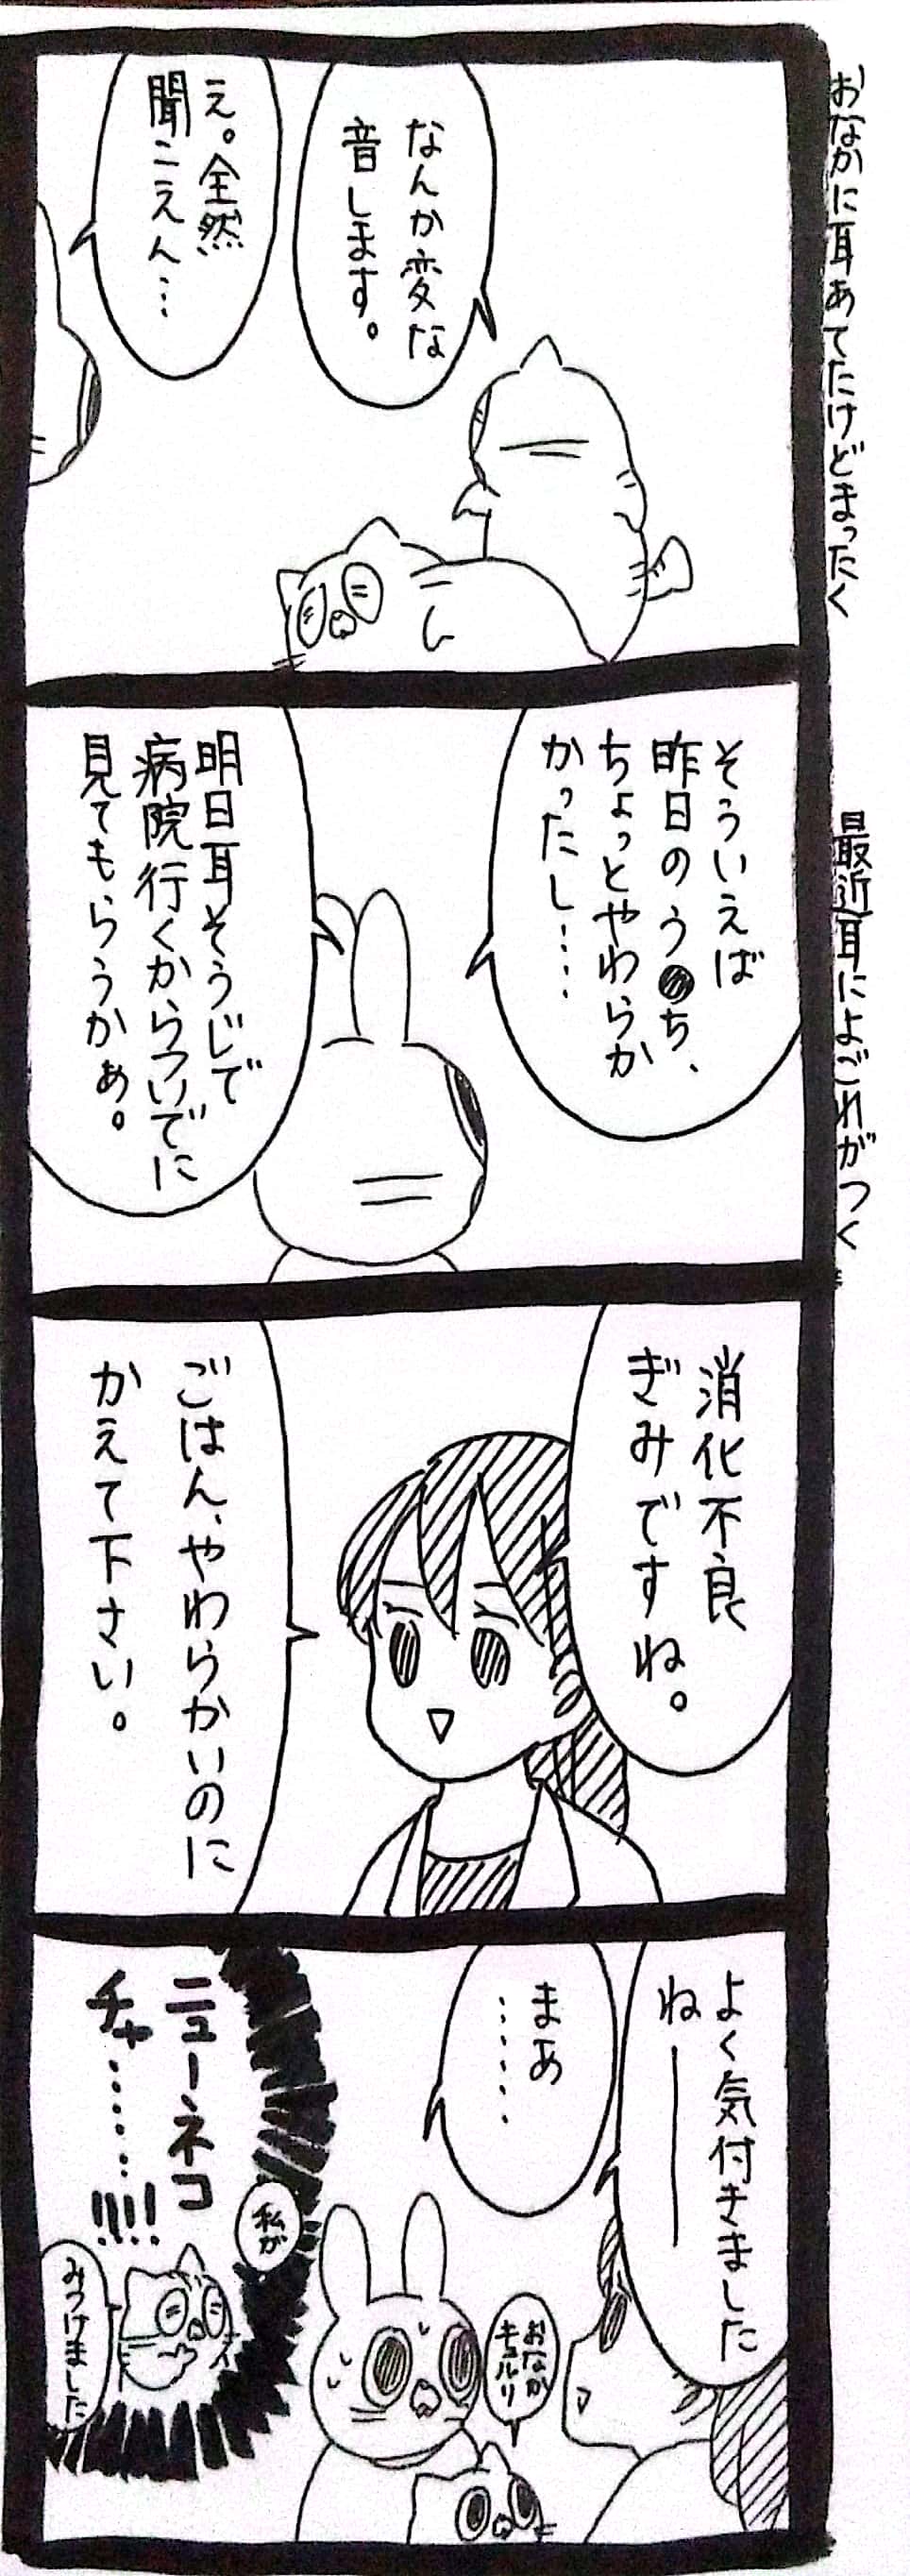 おなかに耳あてたけどまったく
なんか変な
音します。
え。全然
聞こえん…
最近耳によごれがつく
そういえば
昨日のう●ち、
ちょっとやわらか
かったし…
明日耳そうじで
病院行くからついでに
見てもらうかぁ。
消化不良
ぎみですね。
ごはん、やわらかいのに
かえて下さい。
よく気付きました
ね――
まあ
……
おなか
キュルリ
私が
ニューネコ
チャ……!!!!
みつけました